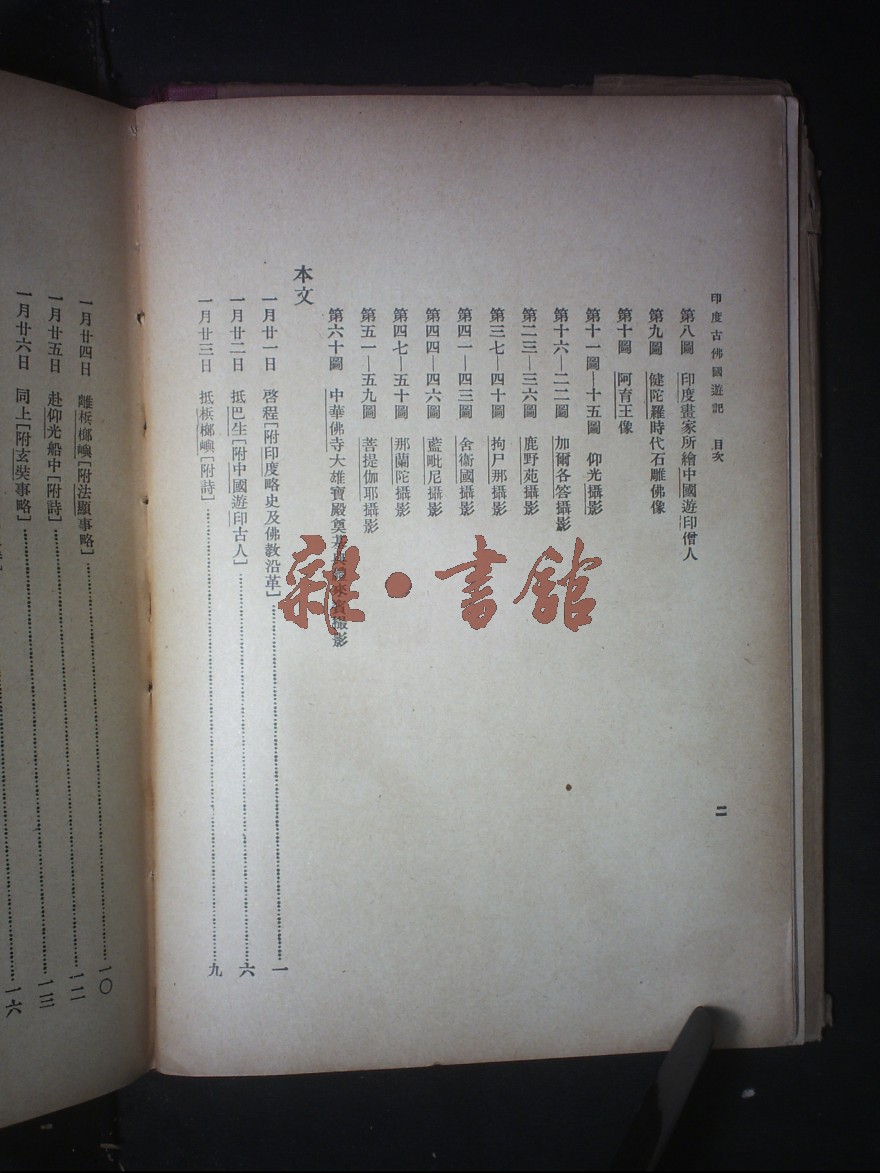 印度古佛國遊記 目次
二
第八圖 印度畫家所繪中國遊印僧人
第九圖 健陀羅時代石雕佛像
第十圖 阿育王像
第十一圖—十五圖 仰光攝影
第十六—二二圖 加爾各答攝影
第二三—三六圖 鹿野苑攝影
第三七—四十圖 拘尸那攝影
第四一—四三圖 舍衞國攝影
第四四—四六圖 藍毗尼攝影
第四七—五十圖 那蘭陀攝影
第五一—五九圖 菩提伽耶攝影
第六十圖 中華佛寺大雄寶殿奠基典禮來賓撮影
本文
一月廿一日 啓程[附印度略史及佛敎沿革]……一
一月廿二日 抵巴生[附中國遊印古人]……六
一月廿三日 抵梹榔嶼[附詩]……九
一月廿四日 離梹榔嶼[附法顯事略]……一〇
一月廿五日 赴仰光船中[附詩]……一二
一月廿六日 同上[附玄奘事略]……一三
一六
雜·書館